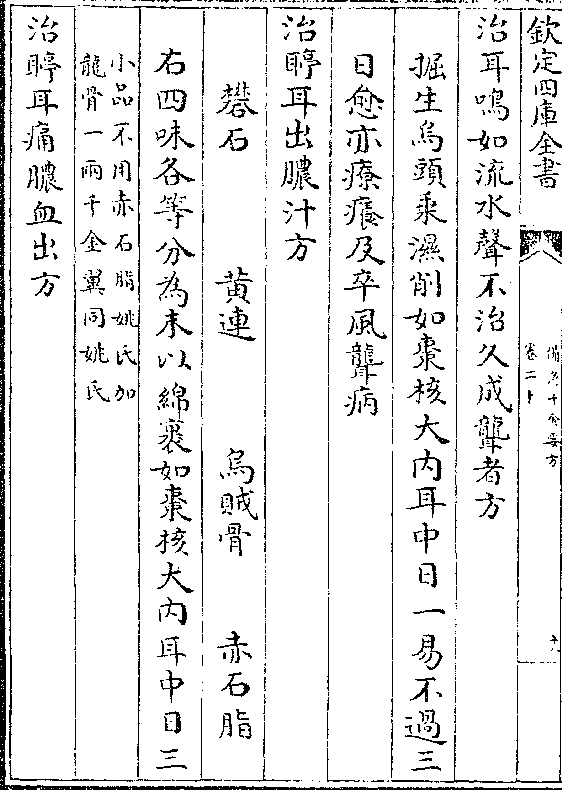 欽定四庫全書
備急千金要方
卷二十
治耳鳴如流水聲不治久成聾者方
掘生烏頭乘濕削如棗核大内耳中日一易不過三
日愈亦療癢及卒風聾病
治聤耳出膿汁方
礬石　黄連　烏賊骨　赤石脂
右四味各等分為末以綿裹如棗核大内耳中日三
小品不用赤石脂姚氏加
龍骨一兩千金翼同姚氏
治聤耳痛膿血出方